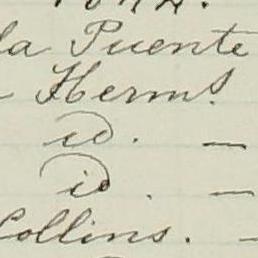 la Puente
Herms.
id. —
id. —
Collins. —